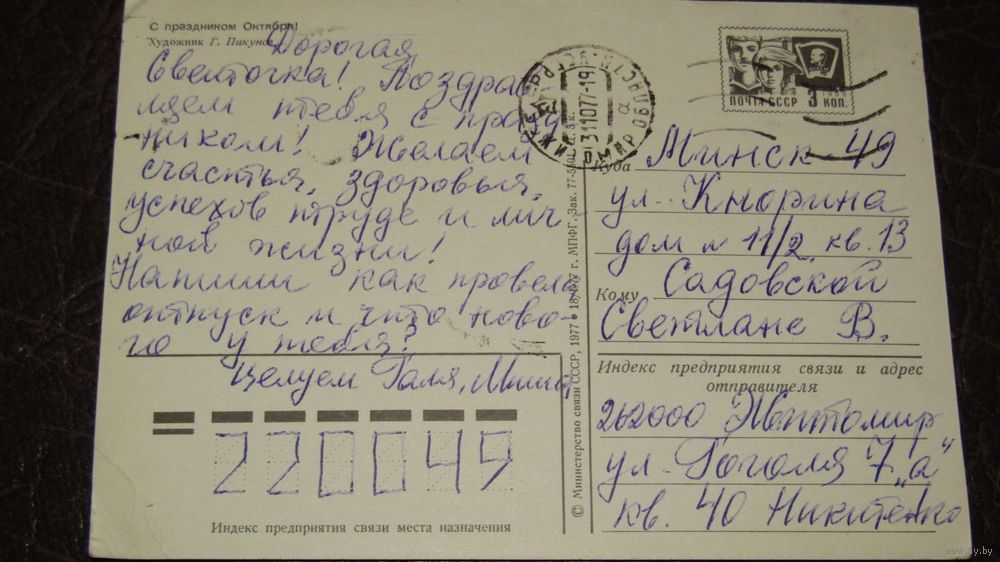 С праздником Октября!
Художник Г. Пикунов
Дорогая
Светочка! Поздрав
ляем тебя с празд
ником! Желаем
счастья, здоровья,
успехов труде и лич-
ной жизни!
Напиши как провела
отпуск и что ново-
го у тебя?
Целуем Галя, Миша
220049
Индекс предприятия связи места назначения
© Министерство связи СССР, 1977
МПФГ. Зак. 77-
311077-19
ПОЧТА СССР 3 КОП.
1966
Куда Минск 49
ул. Кнорина
дом № 11/2 кв. 13
Кому Садовской
Светлане В.
Индекс предприятия связи и адрес
отправителя
262000 Житомир
ул. Гоголя 7 „а“
кв. 40 Никитенко